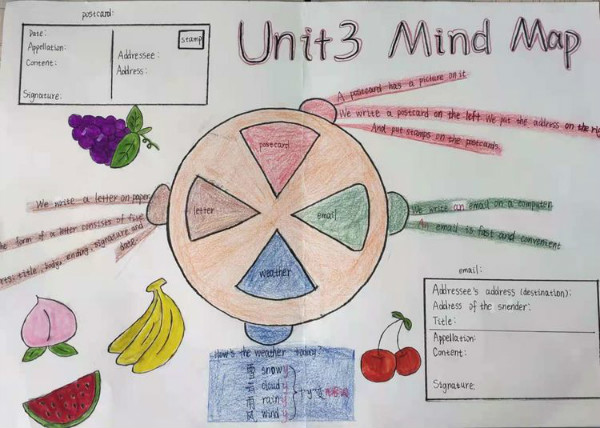 postcard:
Unit3 Mind Map
Date:
Appellation:
Content:
Signature:
stamp
Addressee:
Address:
A postcard has a picture on it
We write a postcard on the left We put the address on the
And put stamps on the postcards
postcard
letter
email
weather
We write a letter on paper
form of a letter consists of five
title, body, ending, signature and
date
We write an email on a computer
An email is fast and convenient
email:
Addressee's address (destination):
Address of the snender:
Title:
Appellation:
Content:
Signature:
How's the weather today?
雪 snowy
云 cloudy
雨 rainy
风 windy